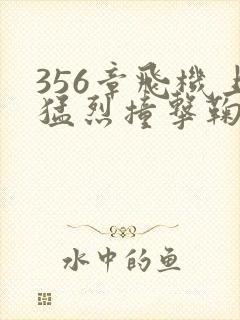 356章飛機上
猛烈撞撃鞠
水中的鱼